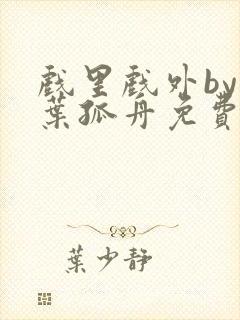 戲里戲外by
葉孤舟免費
葉少靜